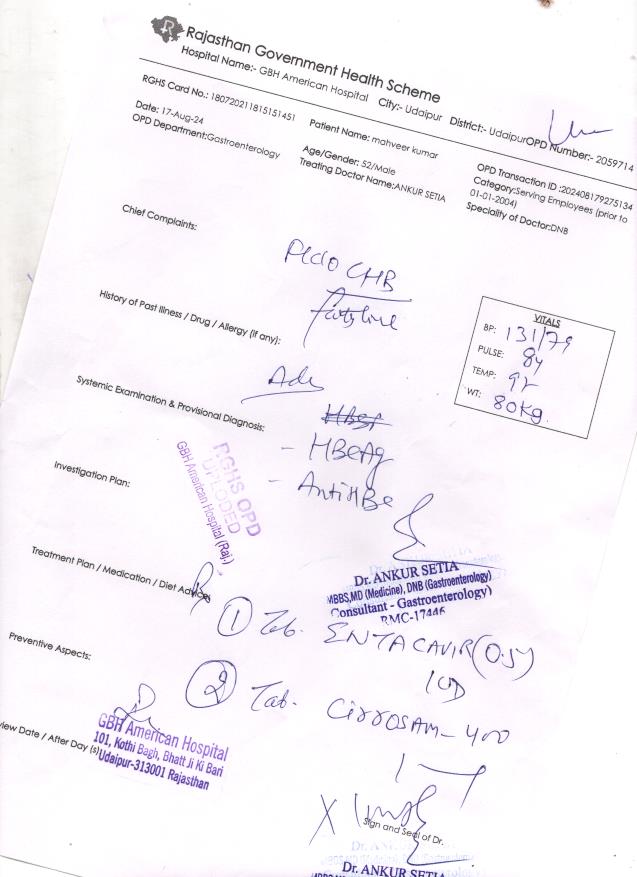 Rajasthan Government Health Scheme
Hospital Name:- GBH American Hospital City:- Udaipur District:- Udaipur OPD Number:- 2059714
RGHS Card No.: 180720211815151451
Patient Name: mahveer kumar
OPD Transaction ID :202408179275134
Date: 17-Aug-24
Age/Gender: 52/Male
Category:Serving Employees (prior to 01-01-2004)
OPD Department:Gastroenterology
Treating Doctor Name:ANKUR SETIA
Speciality of Doctor:DNB
Chief Complaints:
CHB
History of Past Illness / Drug / Allergy (if any):
VITALS
BP: 131/79
PULSE: 84
TEMP:
WT: 80kg
Adv
Systemic Examination & Provisional Diagnosis:
- HBeAg
- Anti HBe
RGHS OPD
UPLODED
GBH American Hospital (Raj.)
Investigation Plan:
Dr. ANKUR SETIA
MBBS,MD (Medicine), DNB (Gastroenterology)
Consultant - Gastroenterology)
RMC-17446
Treatment Plan / Medication / Diet Advice:
Rx
1 Tab. ENTACAVIR (0.5)
Preventive Aspects:
2 Tab. CirrosAM-400
GBH American Hospital
101, Kothi Bagh, Bhatt Ji Ki Bari
Udaipur-313001 Rajasthan
iew Date / After Day (s)
Sign and Seal of Dr.
Dr. ANKUR SETIA